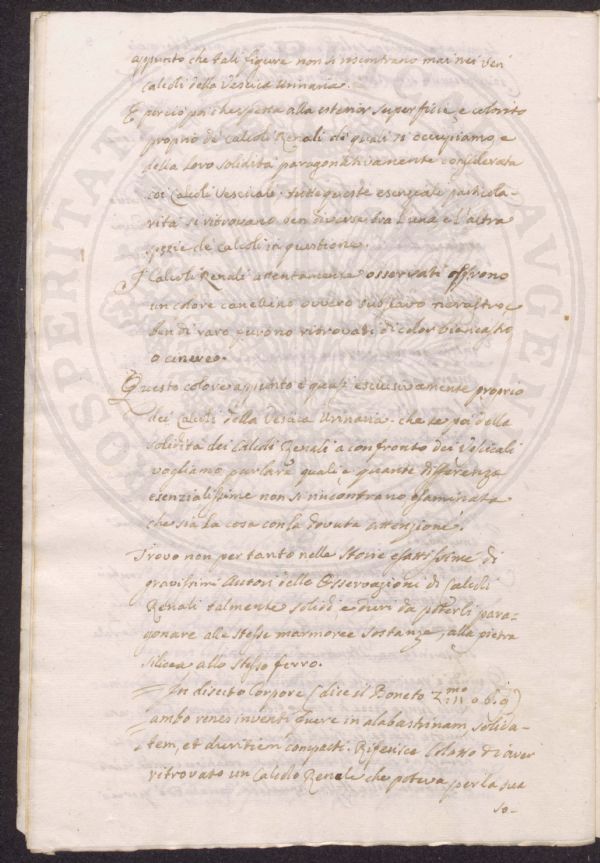 appunto che tali figure non si riscontrano mai nei veri
Calcoli della Vescica Urinaria.
E perciò poi che spetta alla esterior superficie, e colorito
proprio de' Calcoli Renali di quali si occupiamo, e
della loro solidità paragonativamente considerata
coi Calcoli Vescicali; tutte queste esenziali particola-
rità si ritrovano ben diverse tra l'una e l'altra
spezie de' Calcoli in questione.
I Calcoli Renali attentamente osservati offrono
un colore canellino ovvero subflavo nerastro, e
ben di raro furono ritrovati di color biancastro
o cinereo.
Questo colore appunto è quasi esclusivamente proprio
dei Calcoli della Vescica Urinaria. che se poi della
solidità dei Calcoli Renali a confronto dei Vescicali
vogliamo parlare quali e quante differenze
esenzialissime non si rincontrano esaminata
che sia la cosa con la dovuta attenzione!
Trovo non per tanto nelle Storie esattissime di
gravissimi Autori delle Osservazioni di Calcoli
Renali talmente solidi, e duri da poterli para-
gonare alle stesse marmoree sostanze, alla pietra
silicea allo stesso ferro.
In disecto Corpore (dice il Boneto
ambo renes inventi fuere in alabastrinam solida-
tem, et duritiem compacti. Riferisce di aver
ritrovato un Calcolo Renale che poteva per la sua
so-